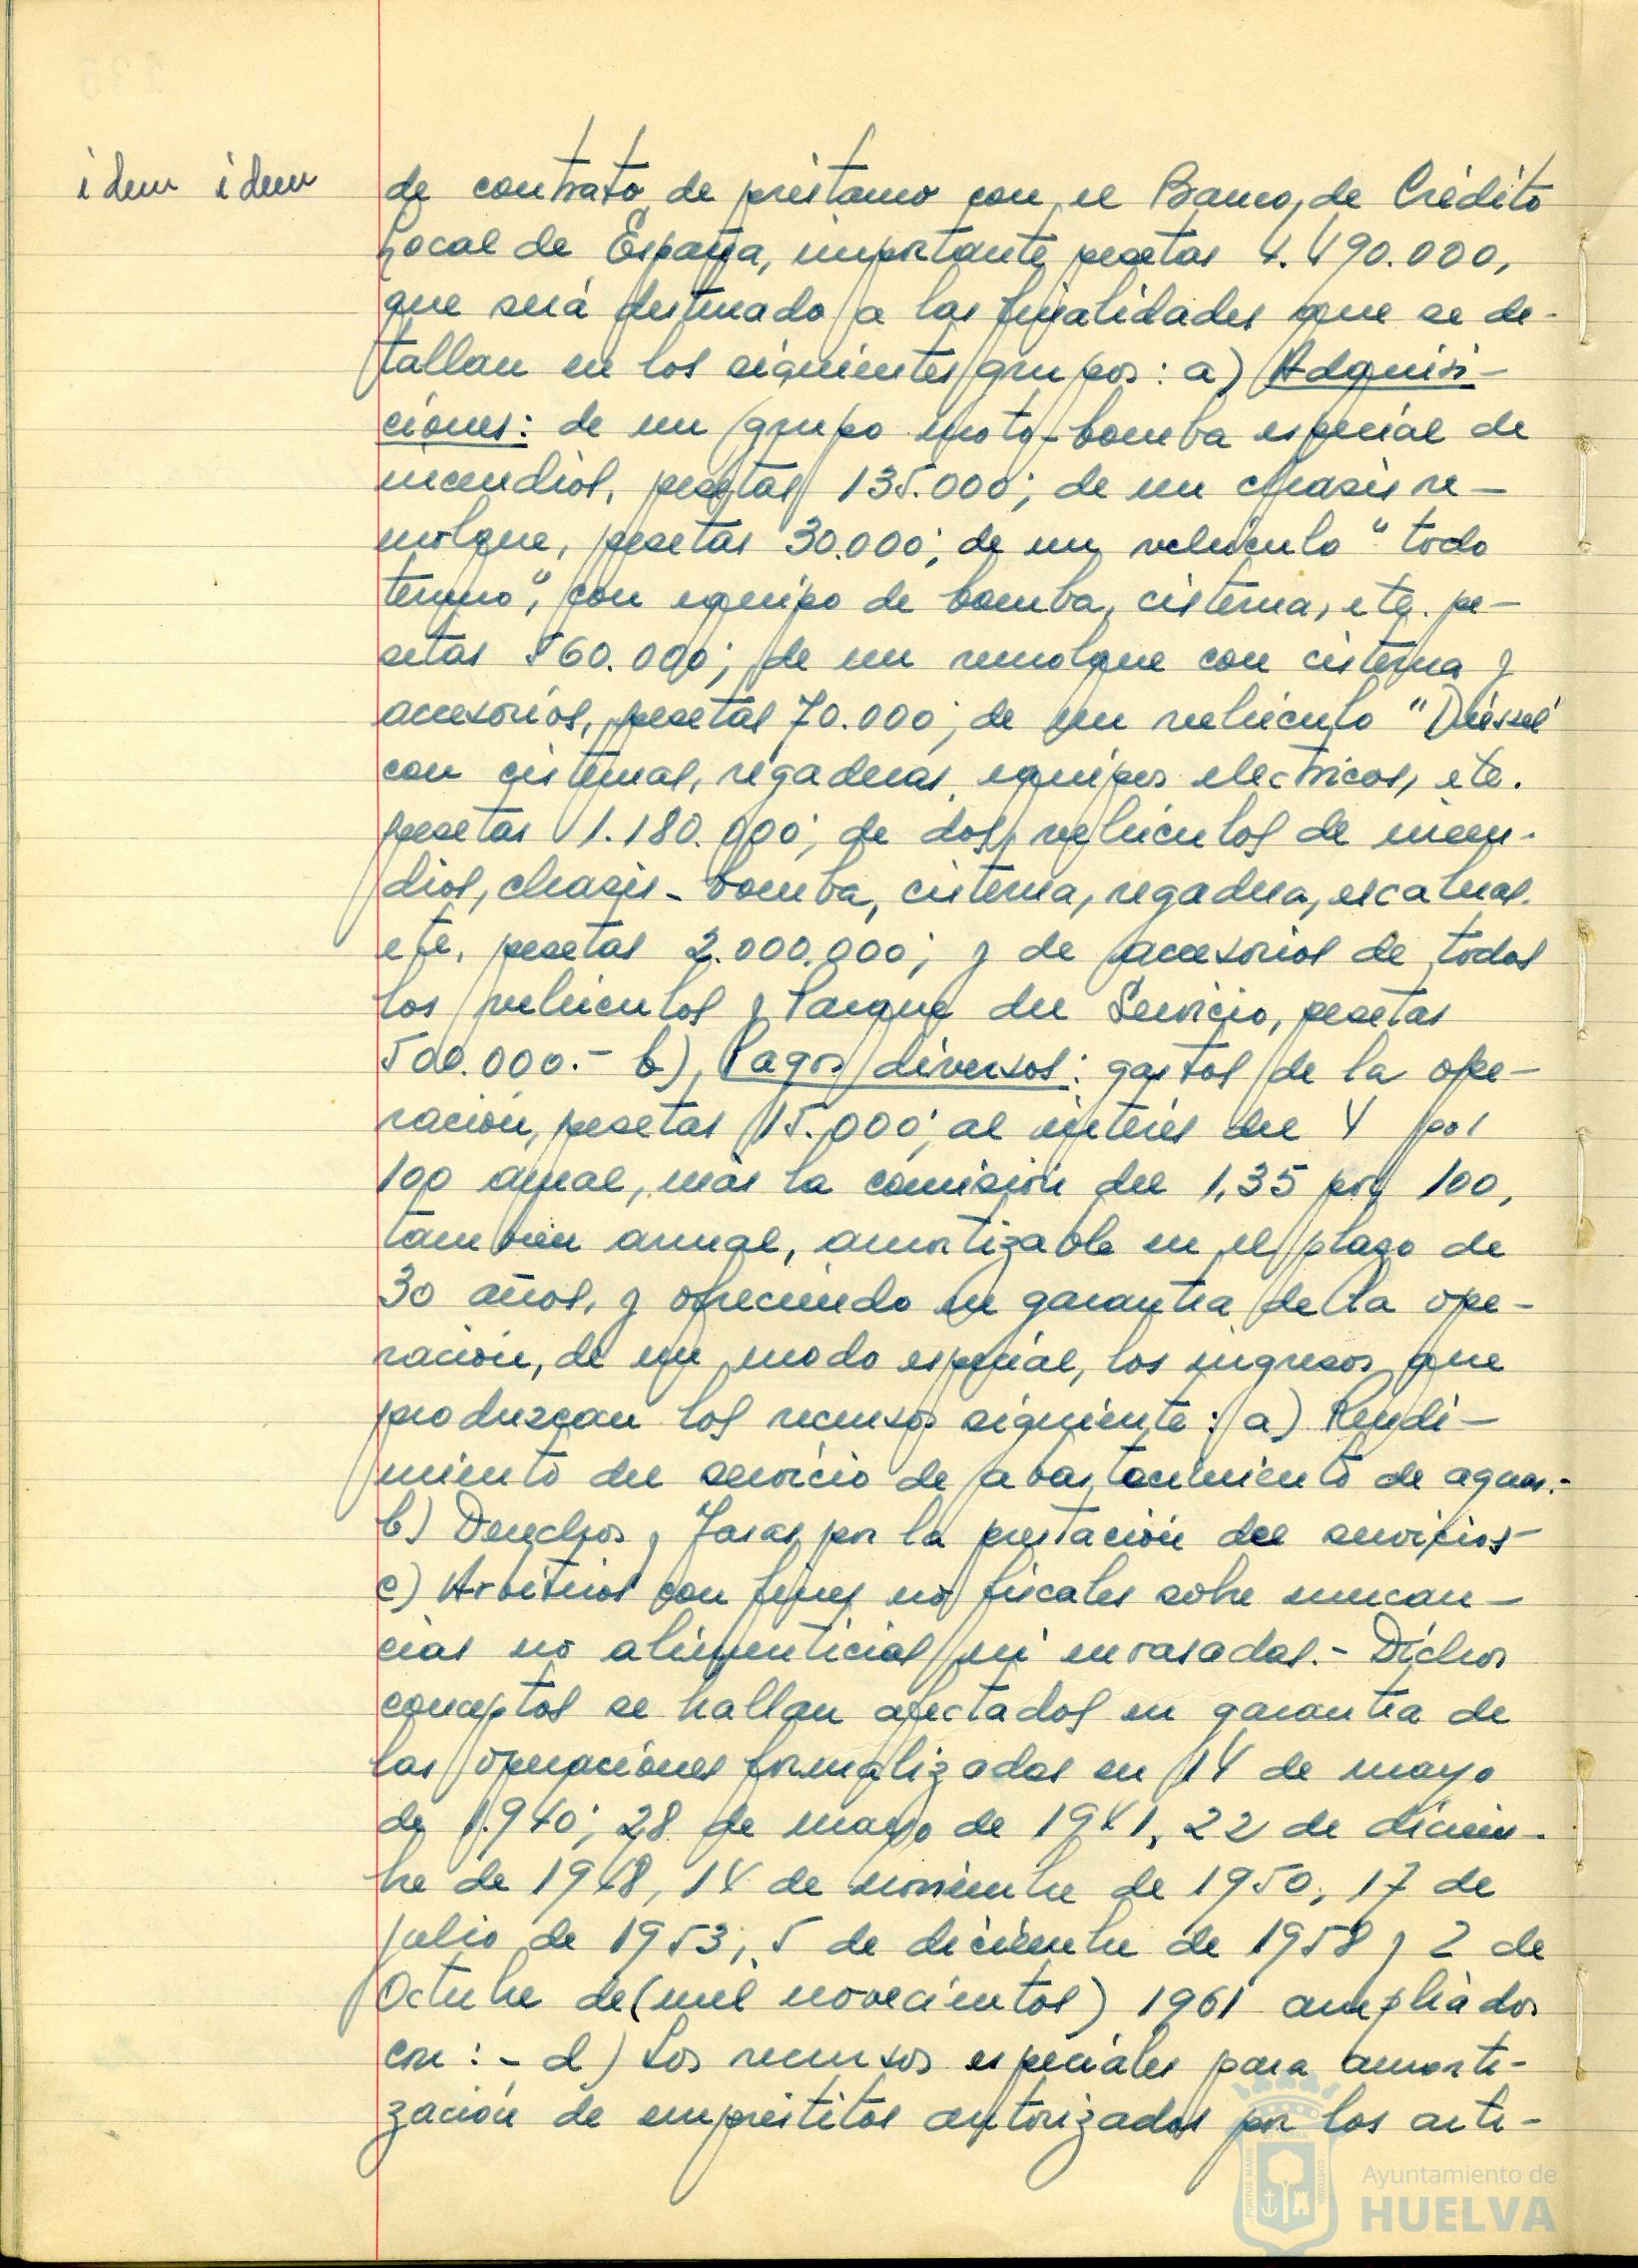 idem idem
de contrato de préstamo con el Banco de Crédito
Local de España, importante pesetas 4.490.000,
que será destinado a las finalidades que se de-
tallan en los siguientes grupos: a) Adquisi-
ciones: de un grupo moto-bomba especial de
incendios, pesetas 135.000; de un chasis re-
molque, pesetas 30.000; de un vehículo "todo
terreno", con equipo de bomba, cisterna, etc. pe-
setas 560.000; de un remolque con cisterna y
accesorios, pesetas 70.000; de un vehículo "Diéssel"
con cisternas, regaderas, equipos eléctricos, etc.
pesetas 1.180.000; de dos vehículos de incen-
dios, chasis-bomba, cisterna, regadera, escaleras.
etc. pesetas 2.000.000; y de accesorios de todos
los vehículos y Parque del Servicio, pesetas
500.000.- b) Pagos diversos: gastos de la ope-
ración, pesetas 15.000; al interés del 4 por
100 anual, más la comisión del 1,35 por 100,
también anual, amortizable en el plazo de
30 años, y ofreciendo en garantía de la ope-
ración, de un modo especial, los ingresos que
produzcan los recursos siguiente: a) Rendi-
miento del servicio de abastecimiento de aguas.-
b) Derechos y Tasas por la prestación del servicios-
c) Arbitrios con fines no fiscales sobre mercan-
cías no alimenticias ni envasadas.- Dichos
conceptos se hallan afectados en garantía de
las operaciones formalizadas en 14 de mayo
de 1.940; 28 de mayo de 1941, 22 de diciem-
bre de 1948, 14 de noviembre de 1950, 17 de
julio de 1953, 5 de diciembre de 1958 y 2 de
Octubre de (mil novecientos) 1961 ampliados
con:- d) Los recursos especiales para amorti-
zación de empréstitos autorizados por los artí-
Ayuntamiento de
HUELVA